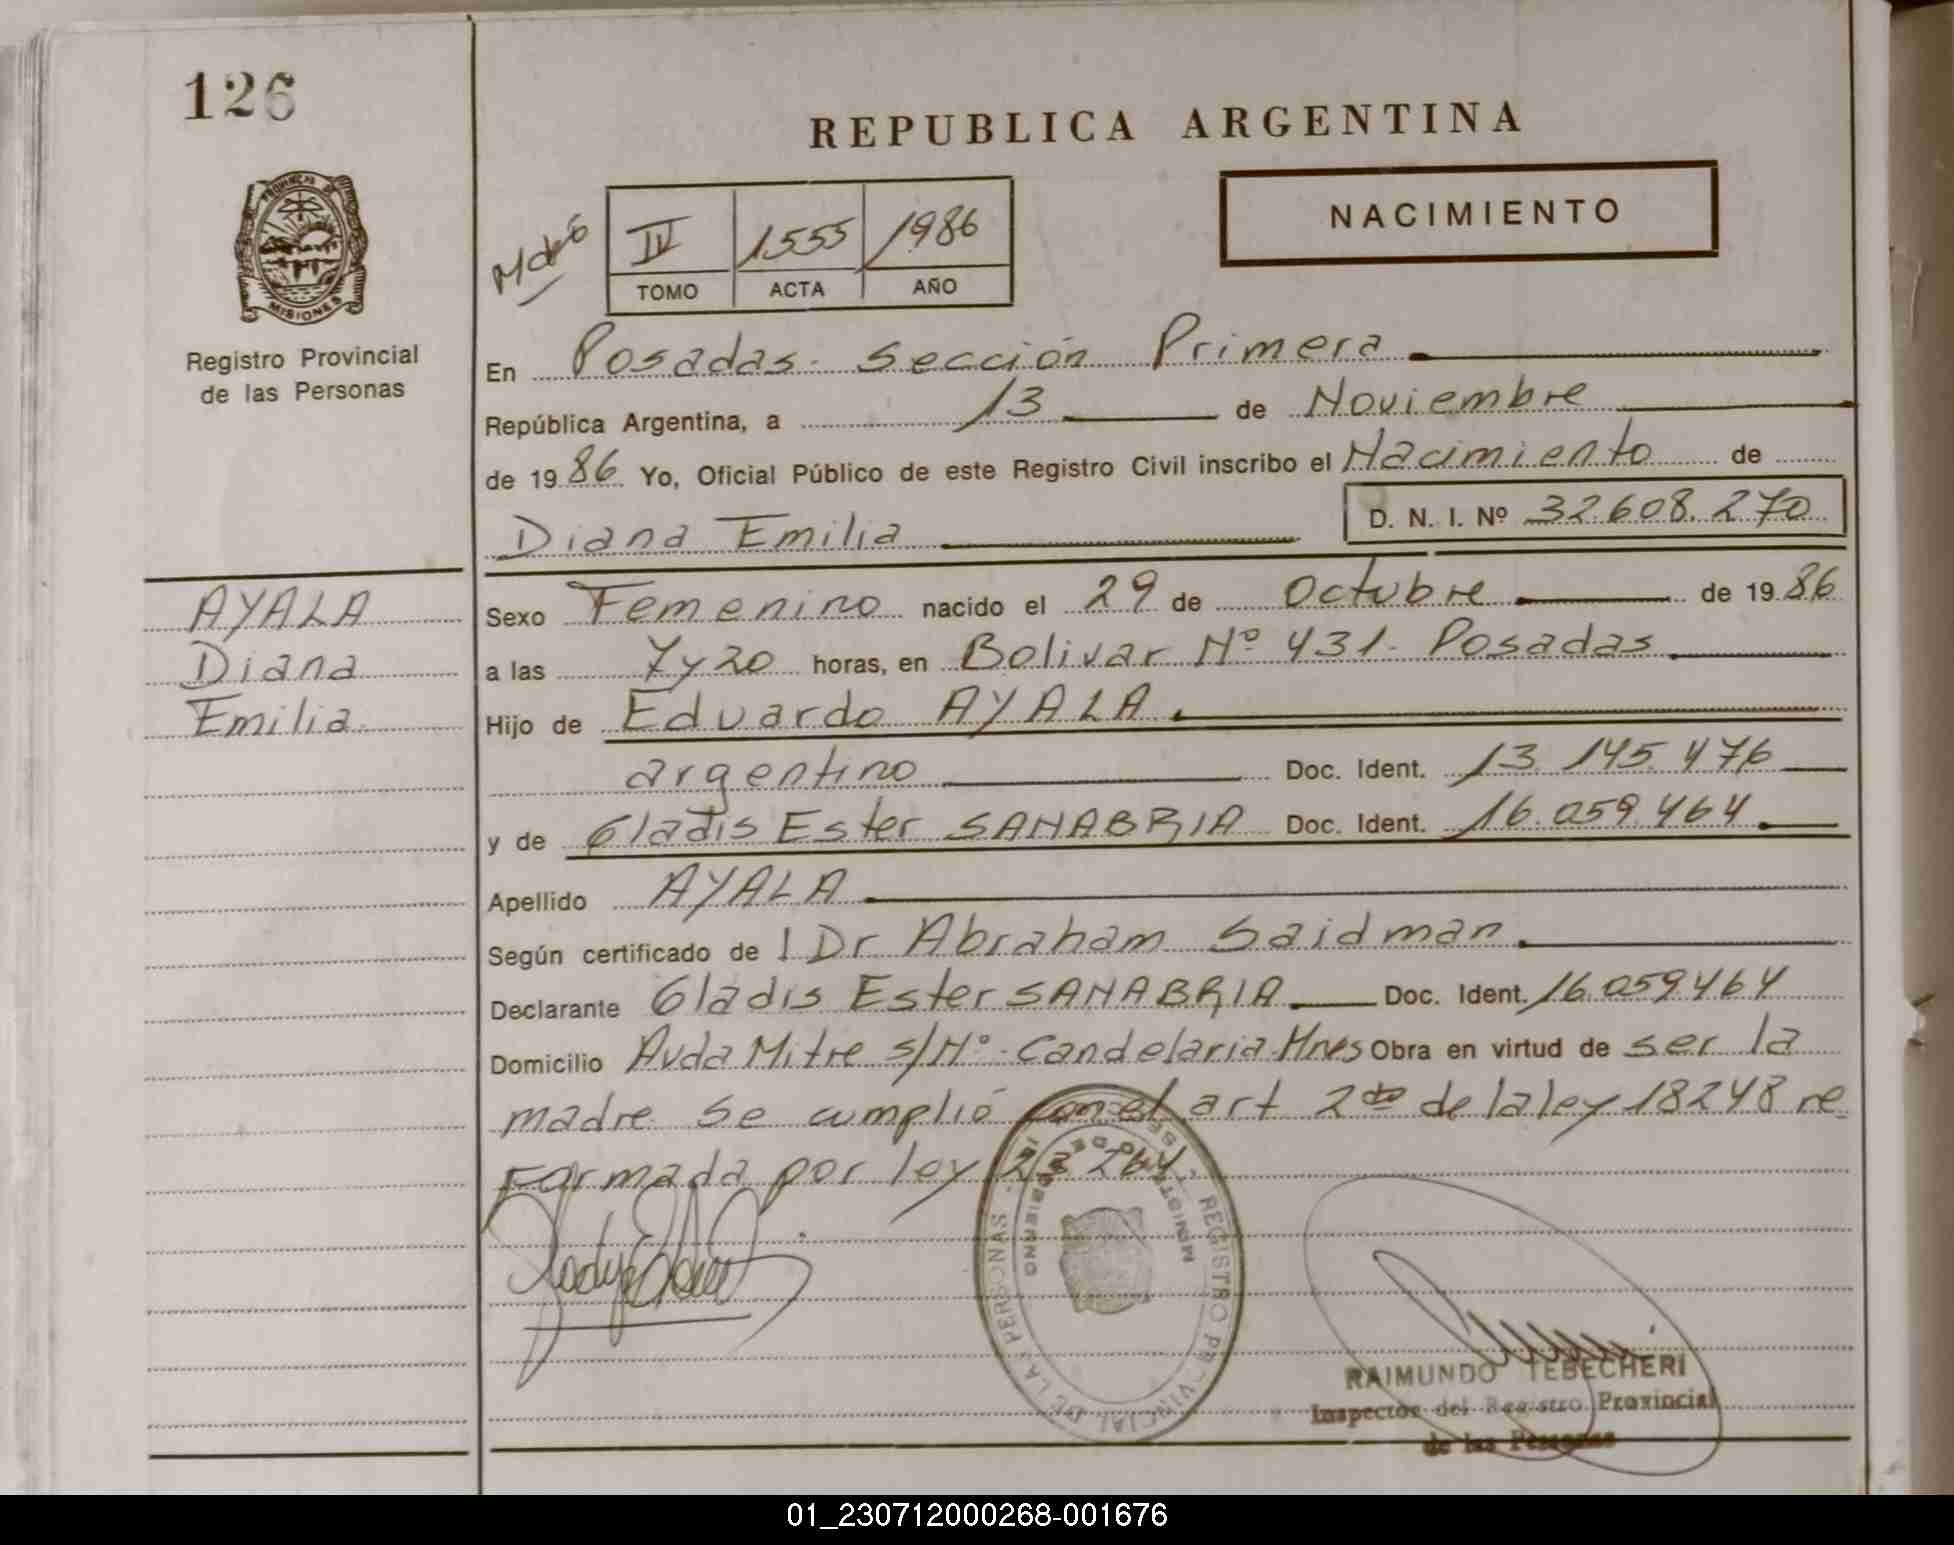 126
PROVINCIA DE
MISIONES
Registro Provincial
de las Personas
AYALA
Diana
Emilia
REPUBLICA ARGENTINA
NACIMIENTO
IV 1555 1986
TOMO ACTA AÑO
En Posadas. Sección Primera
República Argentina, a 13 de Noviembre
de 1986 Yo, Oficial Público de este Registro Civil inscribo el Nacimiento de
D. N. I. Nº 32.608.270
Diana Emilia
Sexo Femenino nacido el 29 de Octubre de 1986
a las 7 y 20 horas, en Bolivar Nº 431. Posadas
Hijo de Eduardo AYALA
argentino Doc. Ident. 13.145.476
y de Gladis Ester SANABRIA Doc. Ident. 16.059.464
Apellido AYALA
Según certificado de l Dr Abraham Saidman
Declarante Gladis Ester SANABRIA Doc. Ident. 16.059.464
Domicilio Avda Mitre s/Nº. Candelaria. Mnes Obra en virtud de ser la
madre. Se cumplió con el art 2do de la ley 18248 re
Formada por ley 23.264.
REGISTRO PROVINCIAL DE LAS PERSONAS
MINISTERIO DE GOBIERNO
RAIMUNDO TEBECHERI
Inspector del Registro Provincial
de las Personas
01_230712000268-001676